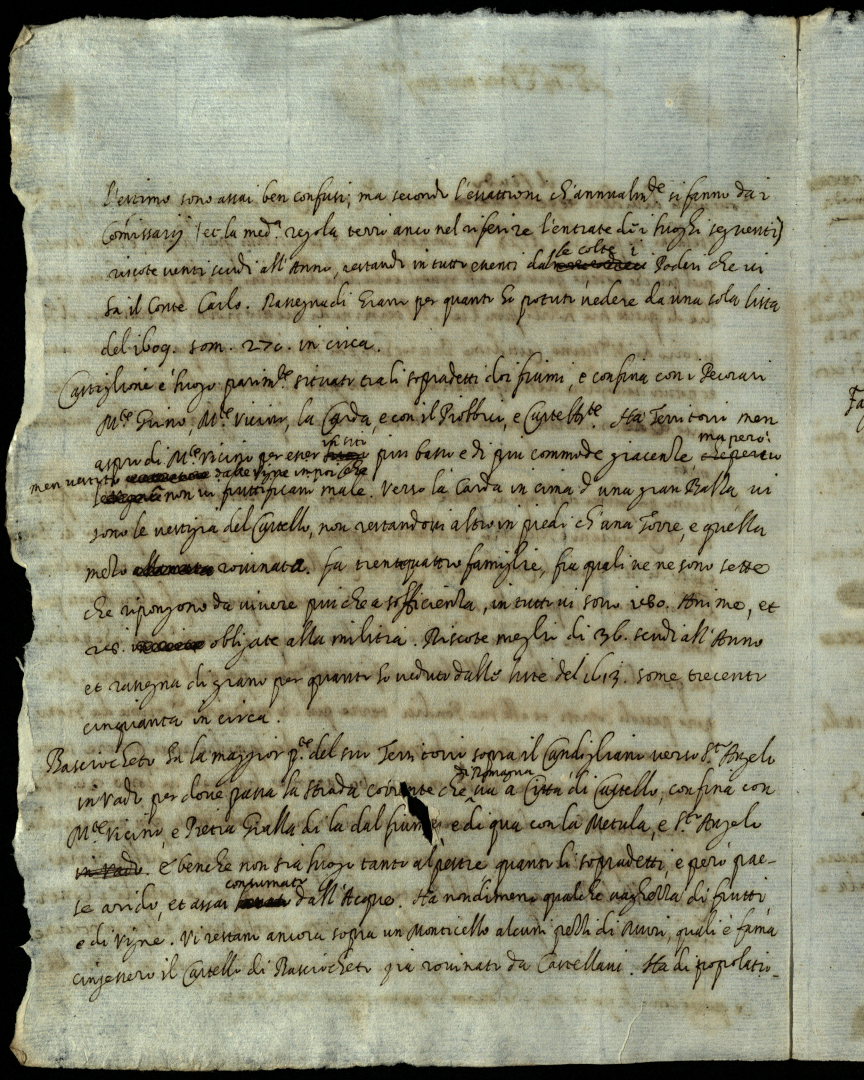 l'estimo sono assai ben confusi; ma secondo l'esattioni ch'annualm.te si fanno da i
Comissarij (et la med.a regola terrò anco nel riferire l'entrate di i luoghi seguenti)
riscote venti scudi all'Anno, restando in tutto esenti dal le colte i Poderi che vi
ha il Conte Carlo. Rassegna di Grani per quanto ho potuto vedere da una sola lista
del 1609. som. 270. in circa.
Castiglione è luogo parim.te situato tra li sopradetti doi fiumi, e confina con i Pecorari
M.te Grino, M.te Vicino, la Carda, e con il Piobbico, e Castell
Ha Territorio men
aspro di M.te Vicino per esser in siti più basso e di più commode giacenze, ma però
men vestito dalle vigne in poi che
non vi fruttificano male. Verso la Carda in cima d'una gran Balza vi
sono le vestigia del Castello, non restandovi altro in piedi ch'una Torre, e quella
mezo rovinata. fa trentaquattro famiglie, fra quali ve ne sono sette
che ripongono da vivere più che a sofficienza, in tutti vi sono 180. Anime, et
obligate alla militia. Riscote meglio di 36. scudi all'Anno
et rassegna di grano per quanto ho veduto dalle liste del 1613. some trecento
cinquanta in circa.
Basciocheto ha la maggior p.te del suo Territorio sopra il Candigliano verso S.to Angelo
in vado per dove passa la strada corrente che di Romagna va a Città di Castello, confina con
M.te Vicino, e Pietra Gialla di la dal fiume e di qua con la Metula, e S.to Angelo
in vado. E benche non sia luogo tanto alpestre quanto li sopradetti, è però pae-
se arido, et assai consumato dall'Acque. Ha nondimeno qualche vaghezza di frutti
e di vigne. Vi restano ancora sopra un Monticello alcuni pezzi di Muri, quali è fama
cingessero il Castello di Basciocheto già rovinato da Castellani. Ha di popolatio-